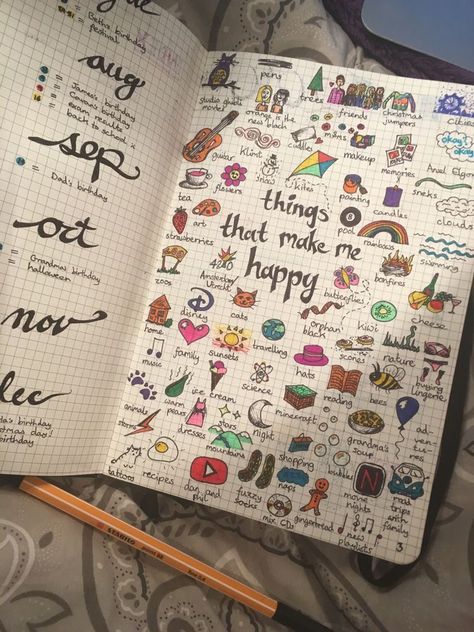 Beth's birthday
festival
aug
= James's birthday
= Gemma's birthday
= exam results
= back to school :c
sep
= Dad's birthday
oct
= Grandma birthday
= halloween
nov
birthday
birthday
things
that make me
happy
studio ghibli
movies
pens
orange is the
new black
trees
friends
christmas
jumpers
cities
guitar
Klimt
snow
candles
mums
makeup
kites
memories
okay?
okay.
Ansel Elgort
flowers
painting
candles
sneks
clouds
tea
strawberries
art
pool
rainbows
swimming
zoos
Amsterdam
4240
butterflies
bonfires
cheese
home
disney
cats
travelling
orphan
black
kiwi
nature
buying
lingerie
music
family
sunsets
hats
scones
animals
warm
paws
ice cream
science
minecraft
reading
bees
adven-
tures
tattoos
recipes
dresses
mountains
stars
night
shopping
grandma's
soup
dan and
phil
fuzzy
socks
naps
mix CDs
gingerbread
bubbles
N
movie
nights
new
playlists
road
trips
with
family
3
STABILO